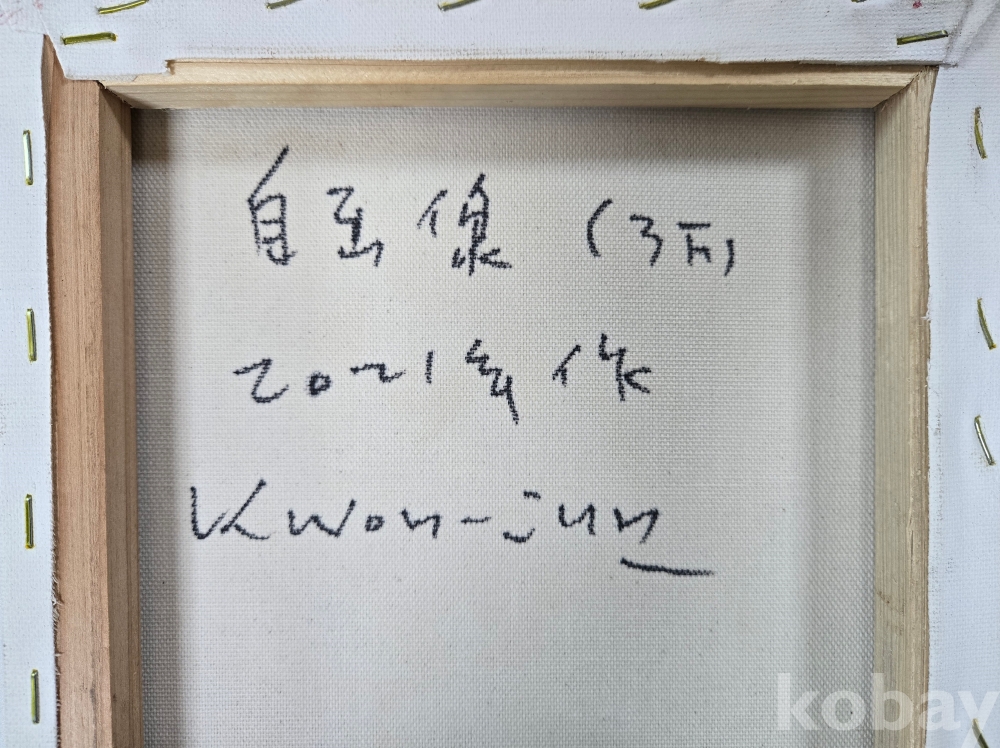 自画像 (3호)
2021年 作
Kwon-jun
kobay